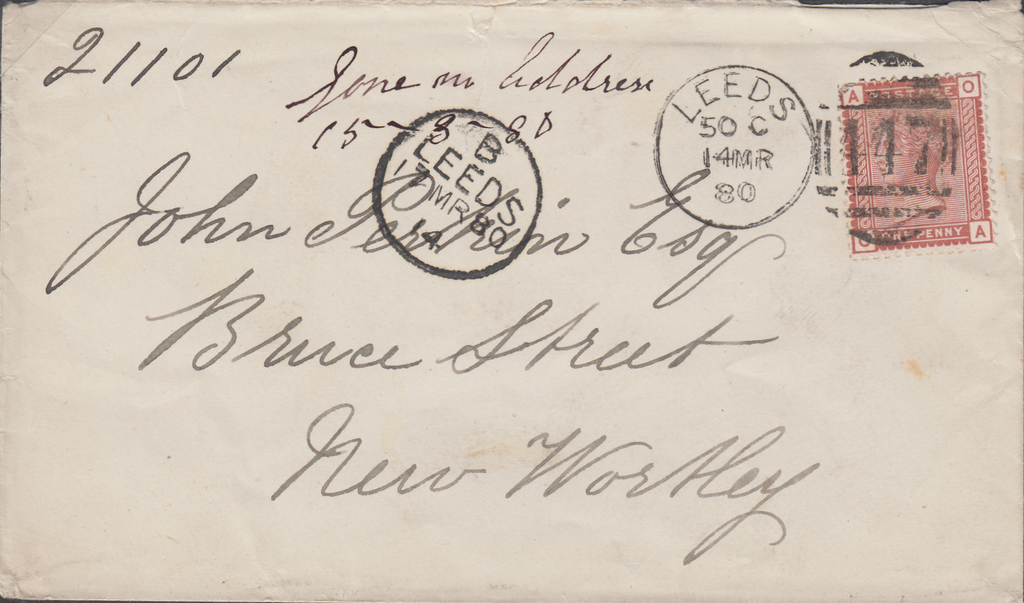 21101
Gone no Address
15-3-80
John Perkin Esq
Bruce Street
New Wortley
B
LEEDS
17 MR 80
14
LEEDS
50 C
14 MR
80
147
A O
POSTAGE
O A
PENNY